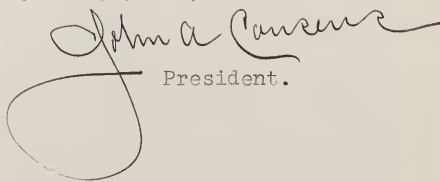 John A Cousens
President.